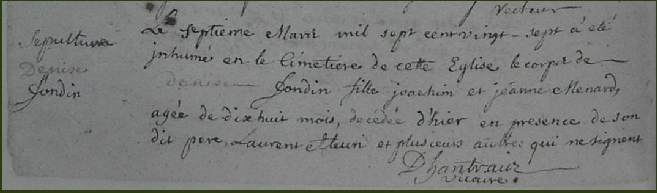 Vecteur
Sepulture
Denise
Jondin
Le septieme Mars mil sept cent vingt-sept à été
inhumé en le Cimetiere de cette Eglise le corps de
denise Jondin fille joachim et jeanne Menard,
agée de dixhuit mois, decédée d'hier en presence de son
dit pere, Laurent fleuri et plusieurs autres qui ne signent
Vicaire